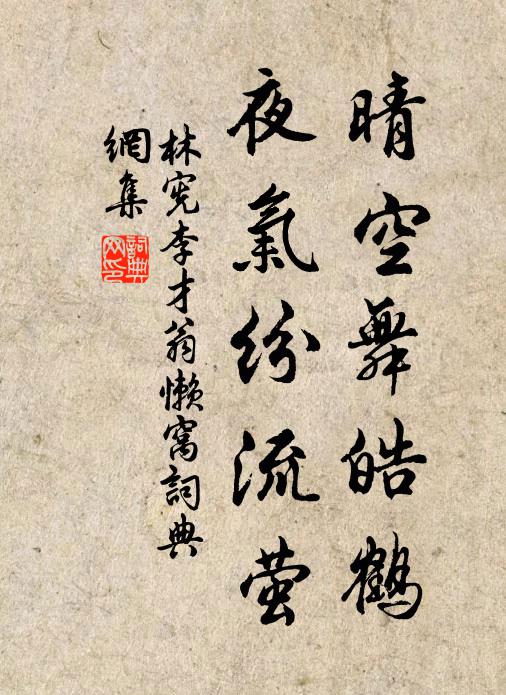 晴空舞皓鶴
夜氣紛流螢
林宪李才翁懒窩詞典
網集
詞典
网印